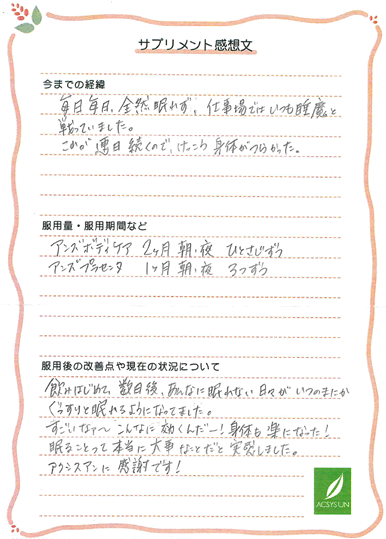 サプリメント感想文
今までの経緯
毎日毎日、全然眠れず、仕事場ではいつも睡魔と
戦っていました。
これが連日続くので、けっこう身体がつらかった。
服用量・服用期間など
アンズボディケア 2ヶ月 朝・夜 ひとさじずつ
アンズプラセンタ 1ヶ月 朝・夜 3つずつ
服用後の改善点や現在の状況について
飲みはじめて、数日後、あんなに眠れない日々が いつのまにか
ぐっすりと眠れるようになってました。
すごいなァ〜 こんなに効くんだー！身体も楽になった！
眠ることって本当に大事なことだと実感しました。
アクシスアンに感謝です！
ACSYS UN